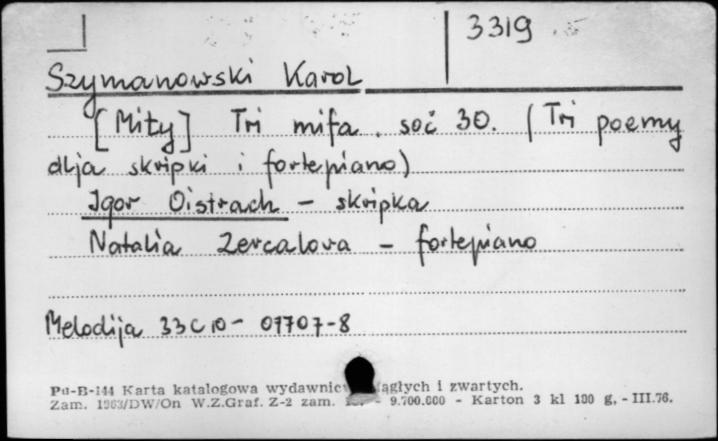 3319
Szymanowski Karol
[Mity] Tri mifa. soč 30. (Tri poemy
dlja skripki i fortepiano)
Igor Oistrach - skripka
Natalia Zercalova - fortepiano
Melodija 33C10-07707-8
Pu-B-144 Karta katalogowa wydawnictw ciągłych i zwartych.
Zam. 1963/DW/On W.Z.Graf. Z-2 zam. - 9.700.000 - Karton 3 kl 190 g. - III.76.